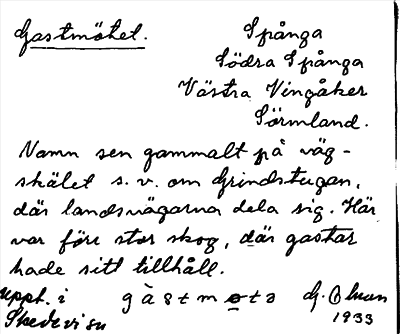 Gastmötet.
Spånga
Södra Spånga
Västra Vingåker
Sörmland.
Namn sen gammalt på väg-
skälet s.v. om Grindstugan,
där landsvägarna dela sig. Här
var före stor skog, där gastar
hade sitt tillhåll.
Uppt. i gàstmøtə G.
Skedevi sn 1933